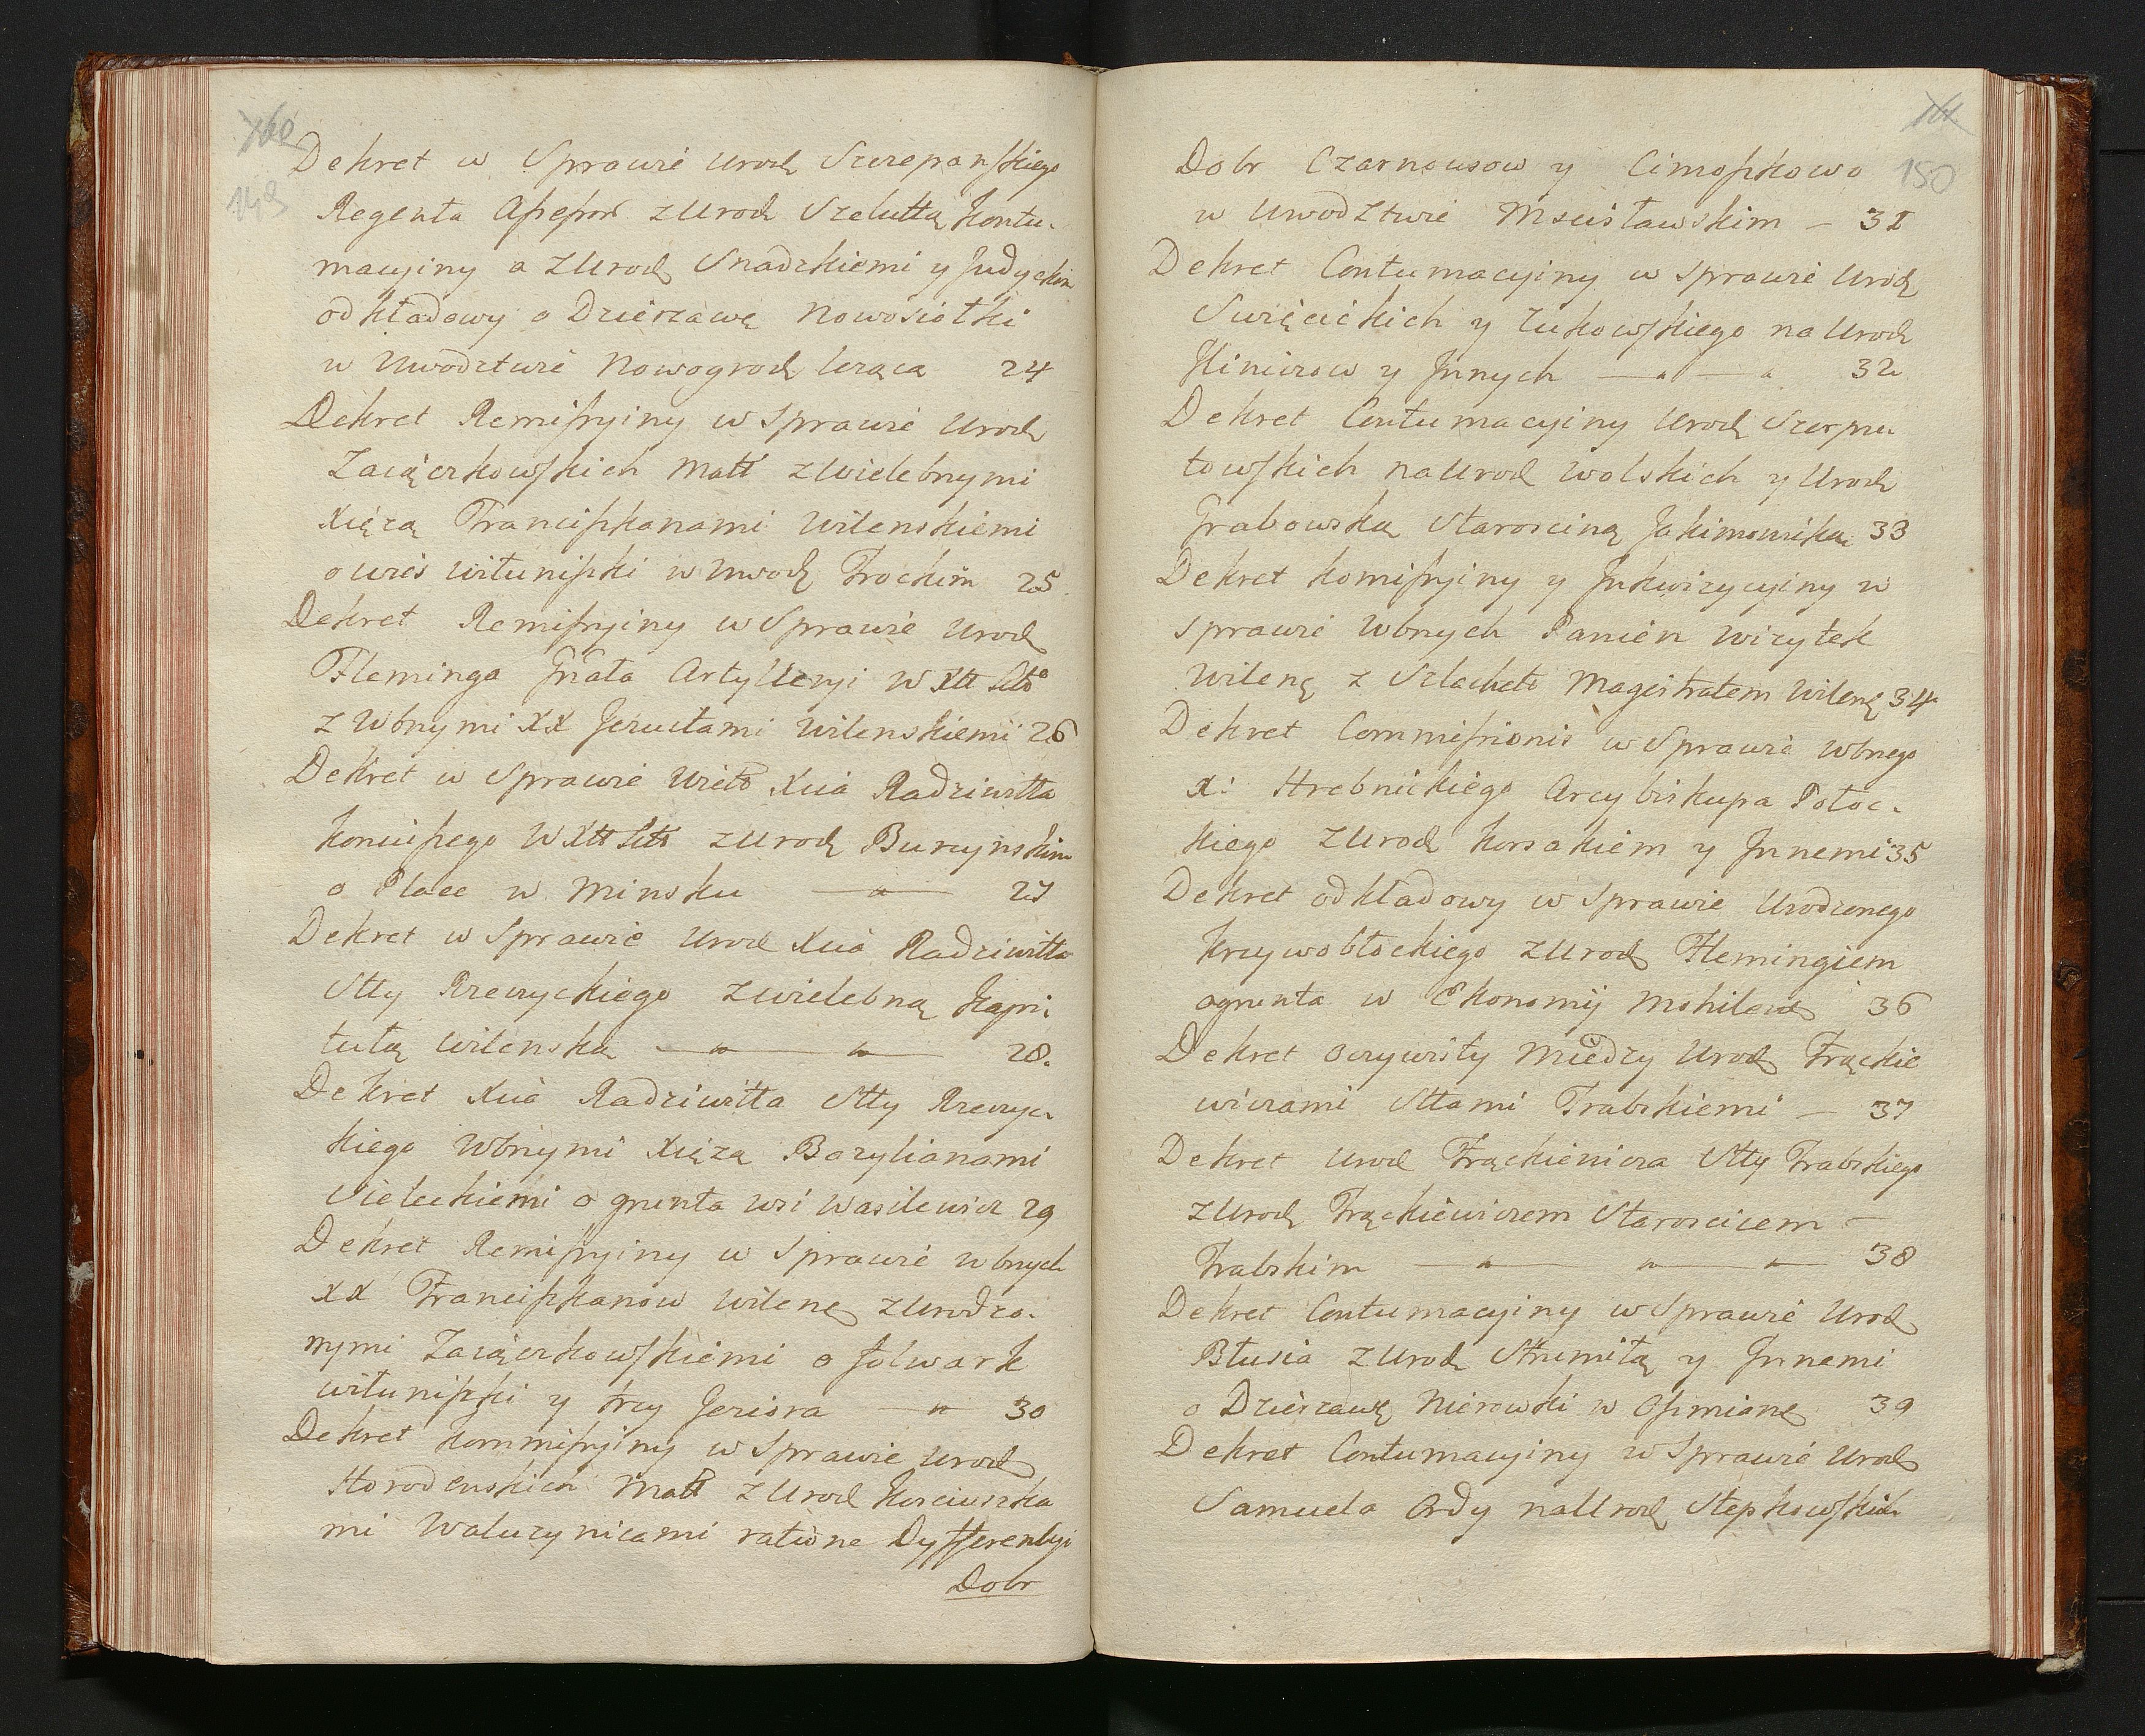 160
149
Dekret w Sprawie Urodz Szczepanskiego
Regenta z Urodz Szeluttą kontu-
macyiny a z Urodz Snadzkiemi y Judyckim
odkładowy o Dzierzawę Nowosiołki
w Uwodztwie Nowogrodz lezącą 24
Dekret Remissyiny w Sprawie Urodz
Zaiączkowskich Małł z Wielebnymi
Xięzą Franciszkanami Wilenskiemi
o wieś Wituniszki w Uwodz Trockim 25
Dekret Remissyiny w Sprawie Urodz
Fleminga Gnała Artylleryi W XLtt Litto
z Wbnymi XX Jezuitami Wilenskiemi 26
Dekret w Sprawie Wielo Xcia Radziwiłła
Koniuszego W XLtt Litt z Urodz Burzynskim
o Place w Minsku — " — 27
Dekret w Sprawie Urodz Xcia Radziwiłła
Stty Rzeczyckiego z Wielebną Kapi
tułą Wilenską — " — " — 28.
Dekret Xcia Radziwiłła Stty Rzeczyc-
kiego Wbnymi Xięzą Bazylianami
Sieleckiemi o grunta wsi Wasilewicz 29
Dekret Remissyiny w Sprawie Wbnych
XX Franciszkanow Wilenę z Urodzo-
nymi Zaiączkowskiemi o folwark
Wituniszki y trzy Jeziora — " — 30
Dekret Kommissyiny w Sprawie Urodz
Horodenskich Małł z Urodz Kosciuszka
mi Waluzynicami ratione Dyfferencyi
Dobr
161
150
Dobr Czarnousow y Cimoszkowo
w Uwodztwie Mscisławskim — 31
Dekret Contumacyiny w Sprawie Urodz
Swięcickich y Zukowskiego na Urodz
Hiniczow y Innych — " — " 32
Dekret Contumacyiny Urodz Szerpu
towskich na Urodz Wolskich y Urodz
Grabowską Starosciną Jakimowiką 33
Dekret Komissyiny y Inkwizycyiny w
Sprawie Wbnych Panien Wizytek
Wilenę z Szlacheto Magistratem Wilenę 34
Dekret Commissionis w Sprawie Wbnego
X: Hrebnickiego Arcybiskupa Połoc-
kiego z Urodz Korsakiem y Innemi 35
Dekret odkładowy w Sprawie Urodzonego
Krzywobłockiego z Urodz Flemingiem
o grunta w Ekonomij Mohilews 36
Dekret Oczywisty Między Urodz Frąckie
wiczami Sttami Trabskiemi — 37
Dekret Urodz Frąckiewicza Stty Trabskiego
z Urodz Frąckiewiczem Staroscicem —
Trabskim — " — " — " — 38
Dekret Contumacyiny w Sprawie Urodz
Błusia z Urodz Strumiłą y Innemi
o Dzierzawę Nierowki w Oszmianę 39
Dekret Contumacyiny w Sprawie Urodz
Samuela Ordy na Urodz Stepkowskich